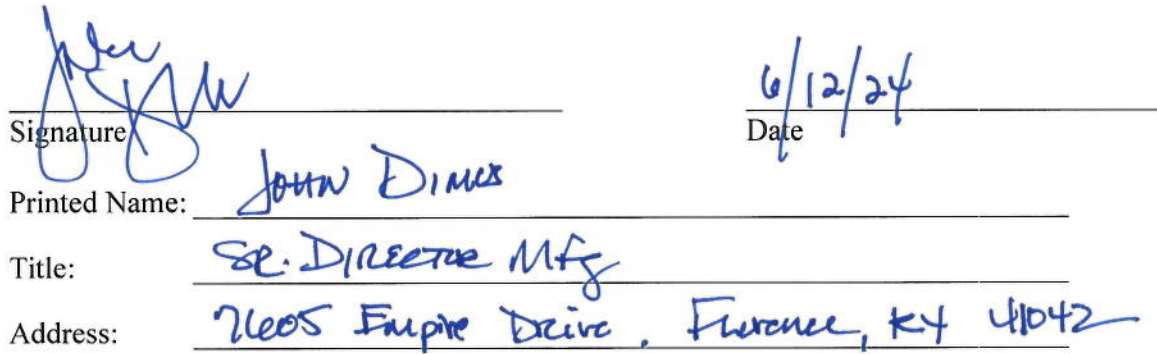 6/12/24
Signature Date
Printed Name: JOHN
Title: SR. DIRECTOR Mfg
Address: 7605 Empire Drive, Florence, KY 41042